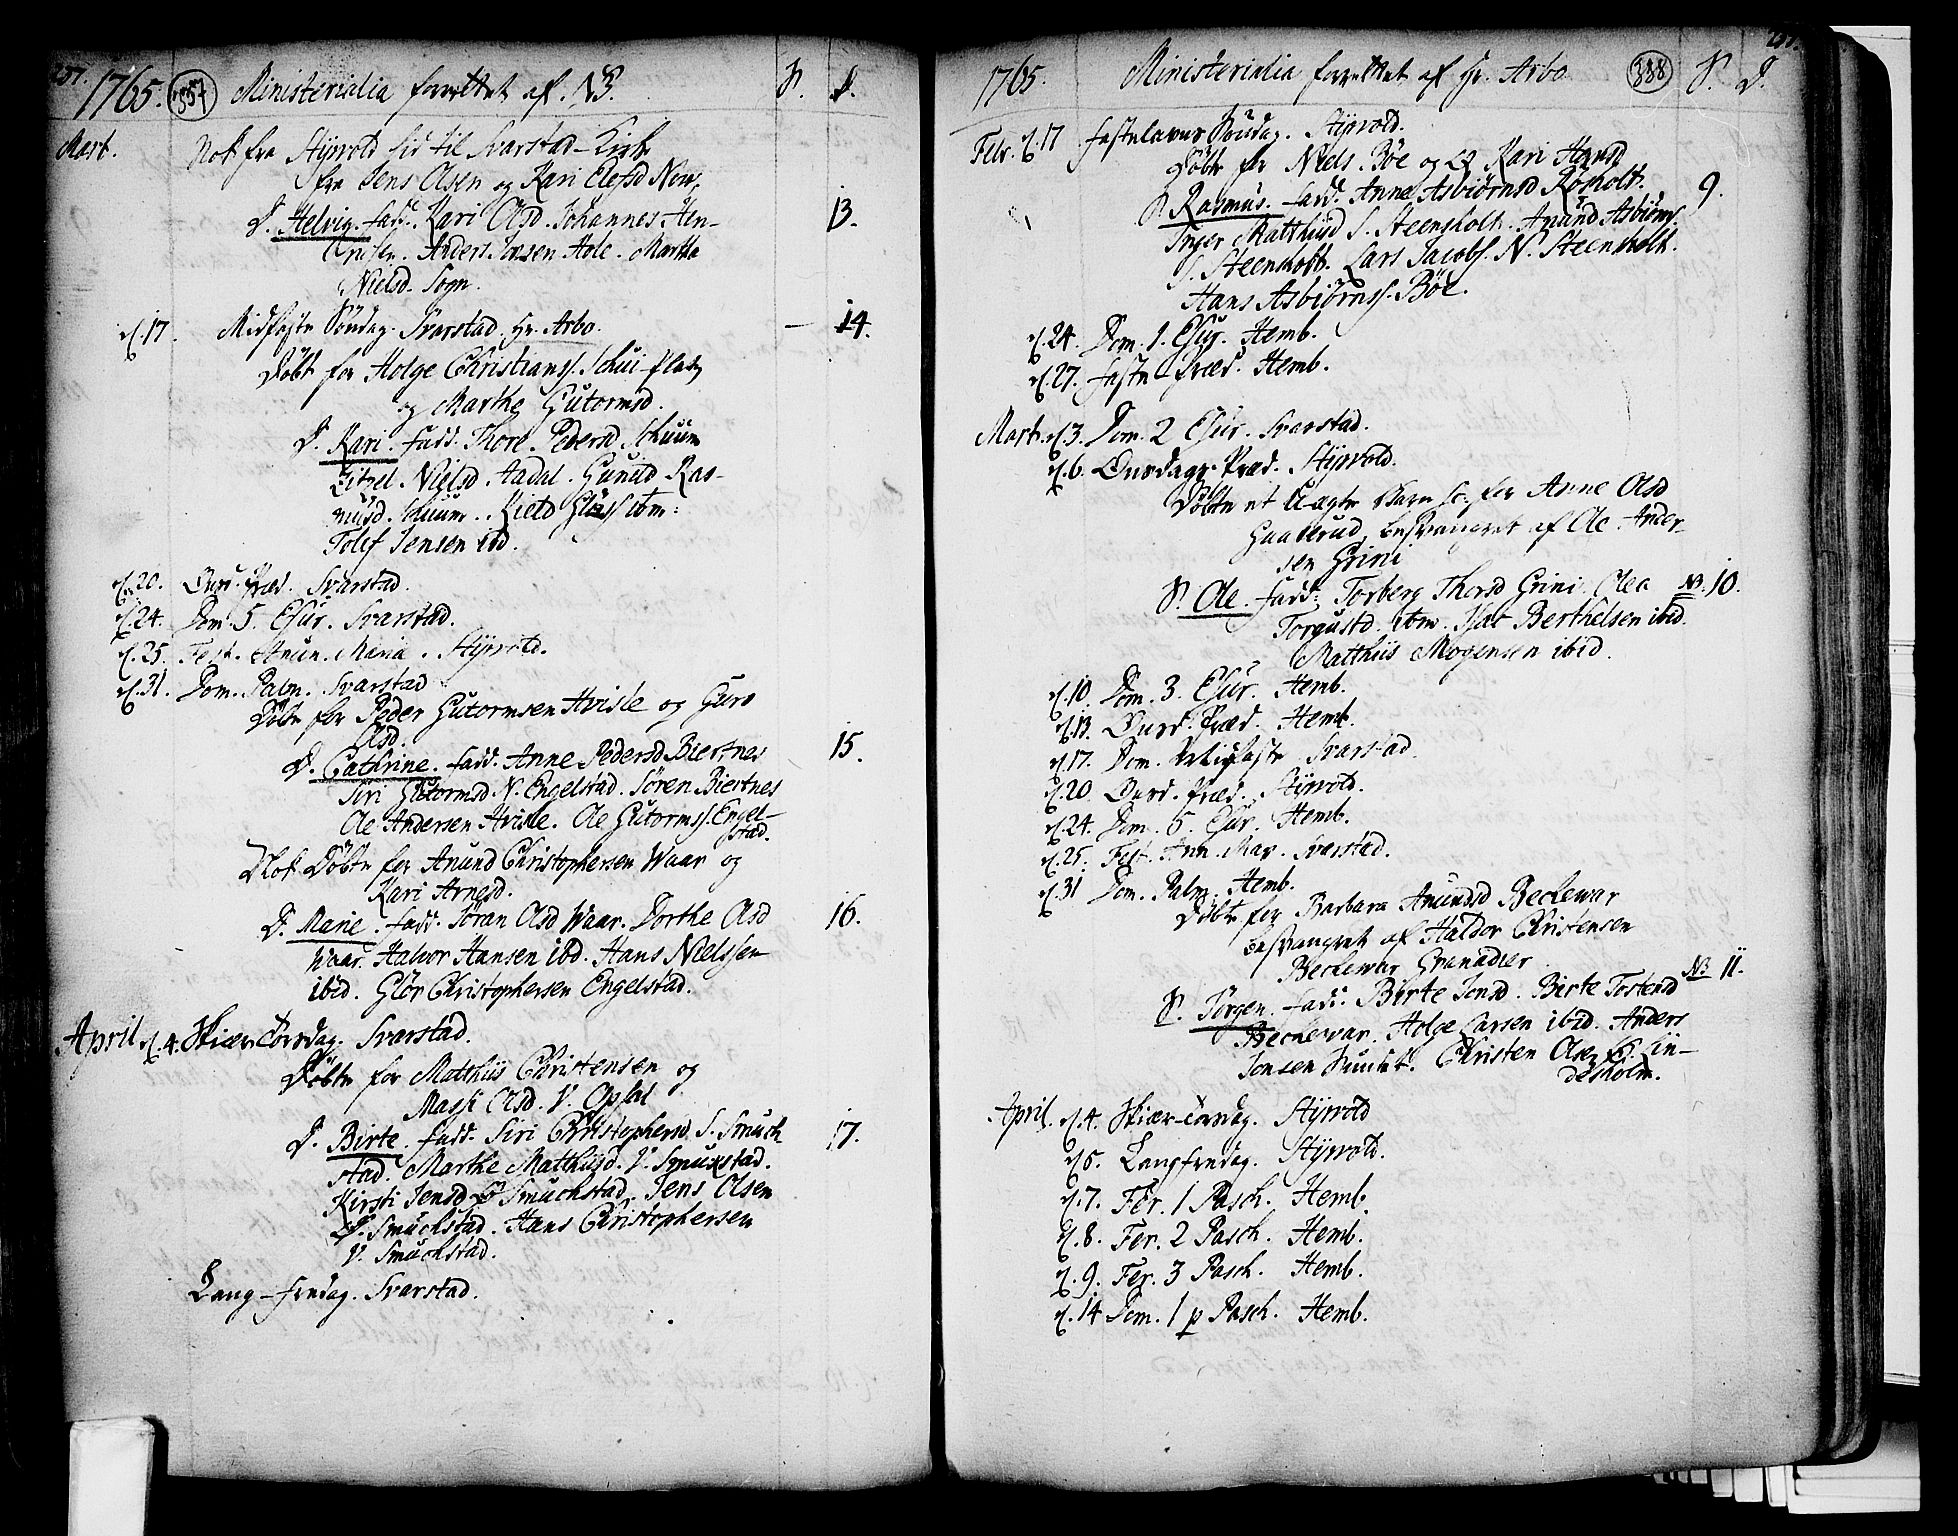 257. 1765. 357 Ministerialia forrettet af NB. S. D.
Mart. Nok fra Styrvold hid til Svarstad-Kirke
fra Jens Olsen og Kari
D. Helvig. fadd. Kari Olsd. Johannes Hen- 13.
Anders Jensen Martha
Nielsd. Sogn.
d. 17. Midfaste Søndag. Svarstad. Hr. Arbo. — 14.
Døbt for Holge Christians. Schui-platz
og Marthe Gutormsd.
D. Kari. fadd. Thore Pedersd. Schuum
Nielsd. Aadal. Gunild Ras-
musd. Schuum. Kield itm:
Tolef Jensen ibd.
d. 20. Onsd. Præd. Svarstad.
d. 24. Dom. 5. Esur. Svarstad.
d. 25. Fest. Anun. Maria. Styrvold.
d. 31. Dom. Palm. Svarstad
Døbt for Peder Gutormsen Hvisle og Guro
Olsd.
D. Cathrine. fadd. Anne Pedersd Biertnes 15.
Siri Gutormsd N. Engelstad. Søren Biertnes
Ole Andersen Hvisle. Ole Gutormss. Engel-
stad.
Nok Døbt for Anund Christophersen Waar og
Kari Arnesd.
D. Marie. fadd. Jøran Olsd Waar. Dorthe Olsd 16.
Waar. Halvor Hansen ibd. Hans Nielssen
ibid. Glør Christophersen Engelstad.
April d. 4. Skiær-Torsdag. Svarstad.
Døbt for Matthiis Christensen og
Massi Olsd. V. Opsal
D. Birte. fadd. Siri Christophersd. S. Smuch 17.
stad. Marthe Matthiisd. V. Smukstad.
Kirsti Jensd Ø Smuchstad. Jens Olsen
Ø. Smuchstad. Hans Christophersen
V. Smuchstad.
Lang-fredag. Svarstad.
1765. Ministerialia forrettet af Hr. Arbo 338 S. D.
Febr. d. 17 fastelavns Søndag. Styrvold.
Døbt for Niels Bøe og Kari Hansd
S. Rasmus. fadd. Anne Asbiørnsd Røsholt. 9.
Inger Matthiisd S. Steensholt. Anund Asbiørns.
S. Steensholt. Lars Jacobs. N. Steensholt.
Hans Asbiørnss. Bøe.
d. 24. Dom. 1. Esur. Hemb.
d. 27. faste-Præd. Hemb.
Mart. d. 3. Dom. 2 Esur. Svarstad.
d. 6. Onsdags-Præd. Styrvold.
Døbt et Uægte Barn for Anne Olsd
Gaaserud, besvangret af Ole Ander-
sen Grini
S. Ole. fadd. Torberg Thorsd Grini. Olea NB. 10.
itm. Isac Berthelsen ibid.
Matthiis Mogensen ibid.
d. 10. Dom. 3. Esur. Hemb.
d. 13. Onsd. Præd. Hemb.
d. 17. Dom. Midfaste Svarstad.
d. 20. Onsd. Præd. Styrvold.
d. 24. Dom. 5. Esur. Hemb.
d. 25. Fest. Ann. Mar. Svarstad.
d. 31. Dom. Palm. Hemb.
Døbt for Barbara Amundsd Beckewar
besvangret af Haldor Christensen
Beckewar Granadier.
S. Jørgen. fadd. Birte Jonsd. Birte Tostensd NB 11.
Beckewar. Holge Larsen ibid. Anders
Jonsen Christen Olsen Lin-
desholm.
April. d. 4. Skiær-Torsdag. Styrvold
d. 5. Langfredag. Styrvold.
d. 7. Fer. 1 Pasch. Hemb.
d. 8. Fer. 2 Pasch. Hemb.
d. 9. Fer. 3 Pasch. Hemb.
d. 14 Dom. 1 p Pasch. Hemb.